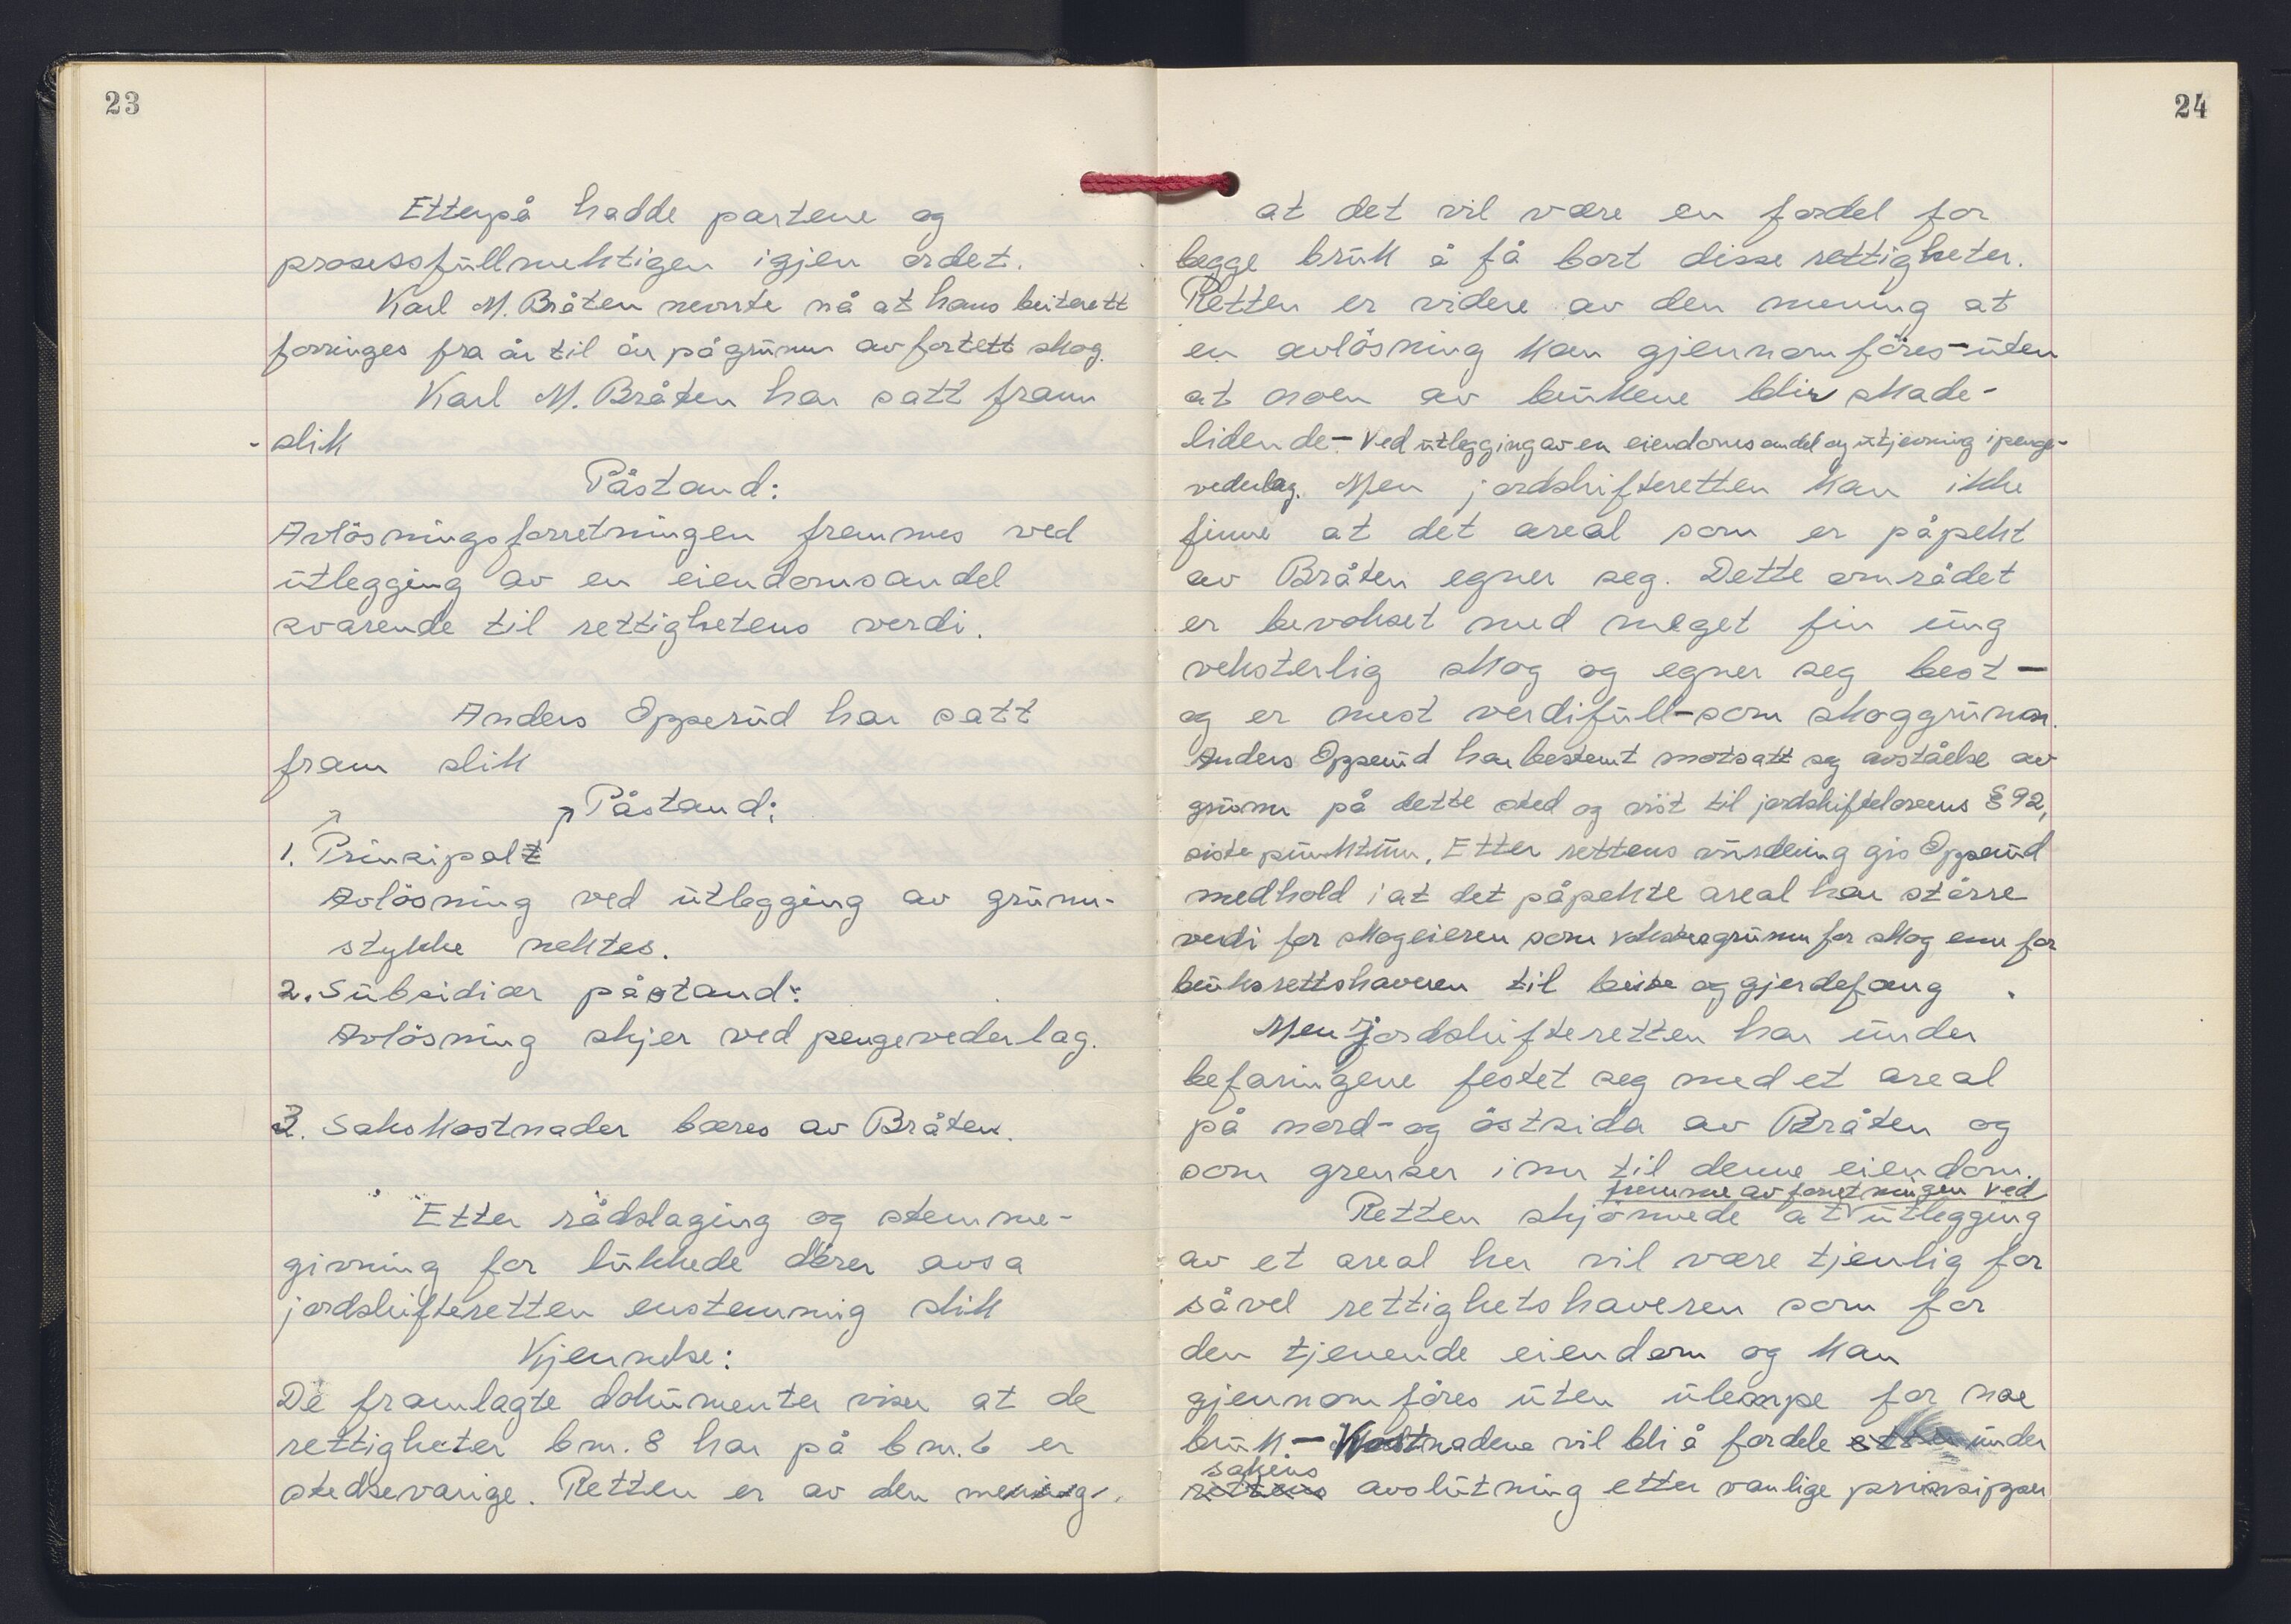 23
Etterpå hadde partene og
prosessfullmektigen igjen ordet.
Karl M. Bråten nevnte nå at hans beiterett
forringes fra år til år på grunn av fortett skog.
Karl M. Bråten har satt fram
slik
Påstand:
Avlösningsforretningen fremmes ved
utlegging av en eiendomsandel
svarende til rettighetens verdi.
Anders Opperud har satt
fram slik
Påstand:
1. Prinsipalt
Avlösning ved utlegging av grunn-
stykke nektes.
2. Subsidiær påstand:
Avlösning skjer ved pengevederlag.
3. Sakskostnader bæres av Bråten.
Etter rådslaging og stemme-
givning for lukkede dörer avsa
jordskifteretten enstemmig slik
Kjennelse:
De framlagte dokumenter viser at de
rettigheter bnr. 8 har på bnr. 6 er
stedsevarige. Retten er av den mening
24
at det vil være en fordel for
begge bruk å få bort disse rettigheter.
Retten er videre av den mening at
en avlösning kan gjennomföres - uten
at noen av brukene blir skade-
lidende - ved utlegging av en eiendomsandel og utjevning i penge-
vederlag. Men jordskifteretten kan ikke
finne at det areal som er påpekt
av Bråten egner seg. Dette området
er bevokset med meget fin ung
veksterlig skog og egner seg best -
og er mest verdifull - som skoggrunn.
Anders Opperud har bestemt motsatt seg avståelse av
grunn på dette sted og vist til jordskiftelovens § 92,
siste punktum. Etter rettens vurdering gis Opperud
medhold i at det påpekte areal har större
verdi for skogeieren som vokstergrunn for skog enn for
bruksrettshaveren til beite og gjerdefang.
Men jordskifteretten har under
befaringene festet seg med et areal
på nord- og östsida av Bråten og
som grenser inn til denne eiendom.
fremme av forretningen ved
Retten skjönnede at utlegging
av et areal her vil være tjenlig for
såvel rettighetshaveren som for
den tjenende eiendom og kan
gjennomföres uten ulempe for noe
bruk - Kostnadene vil bli å fordele etter under
sakens
rettens avslutning etter vanlige prinsipper